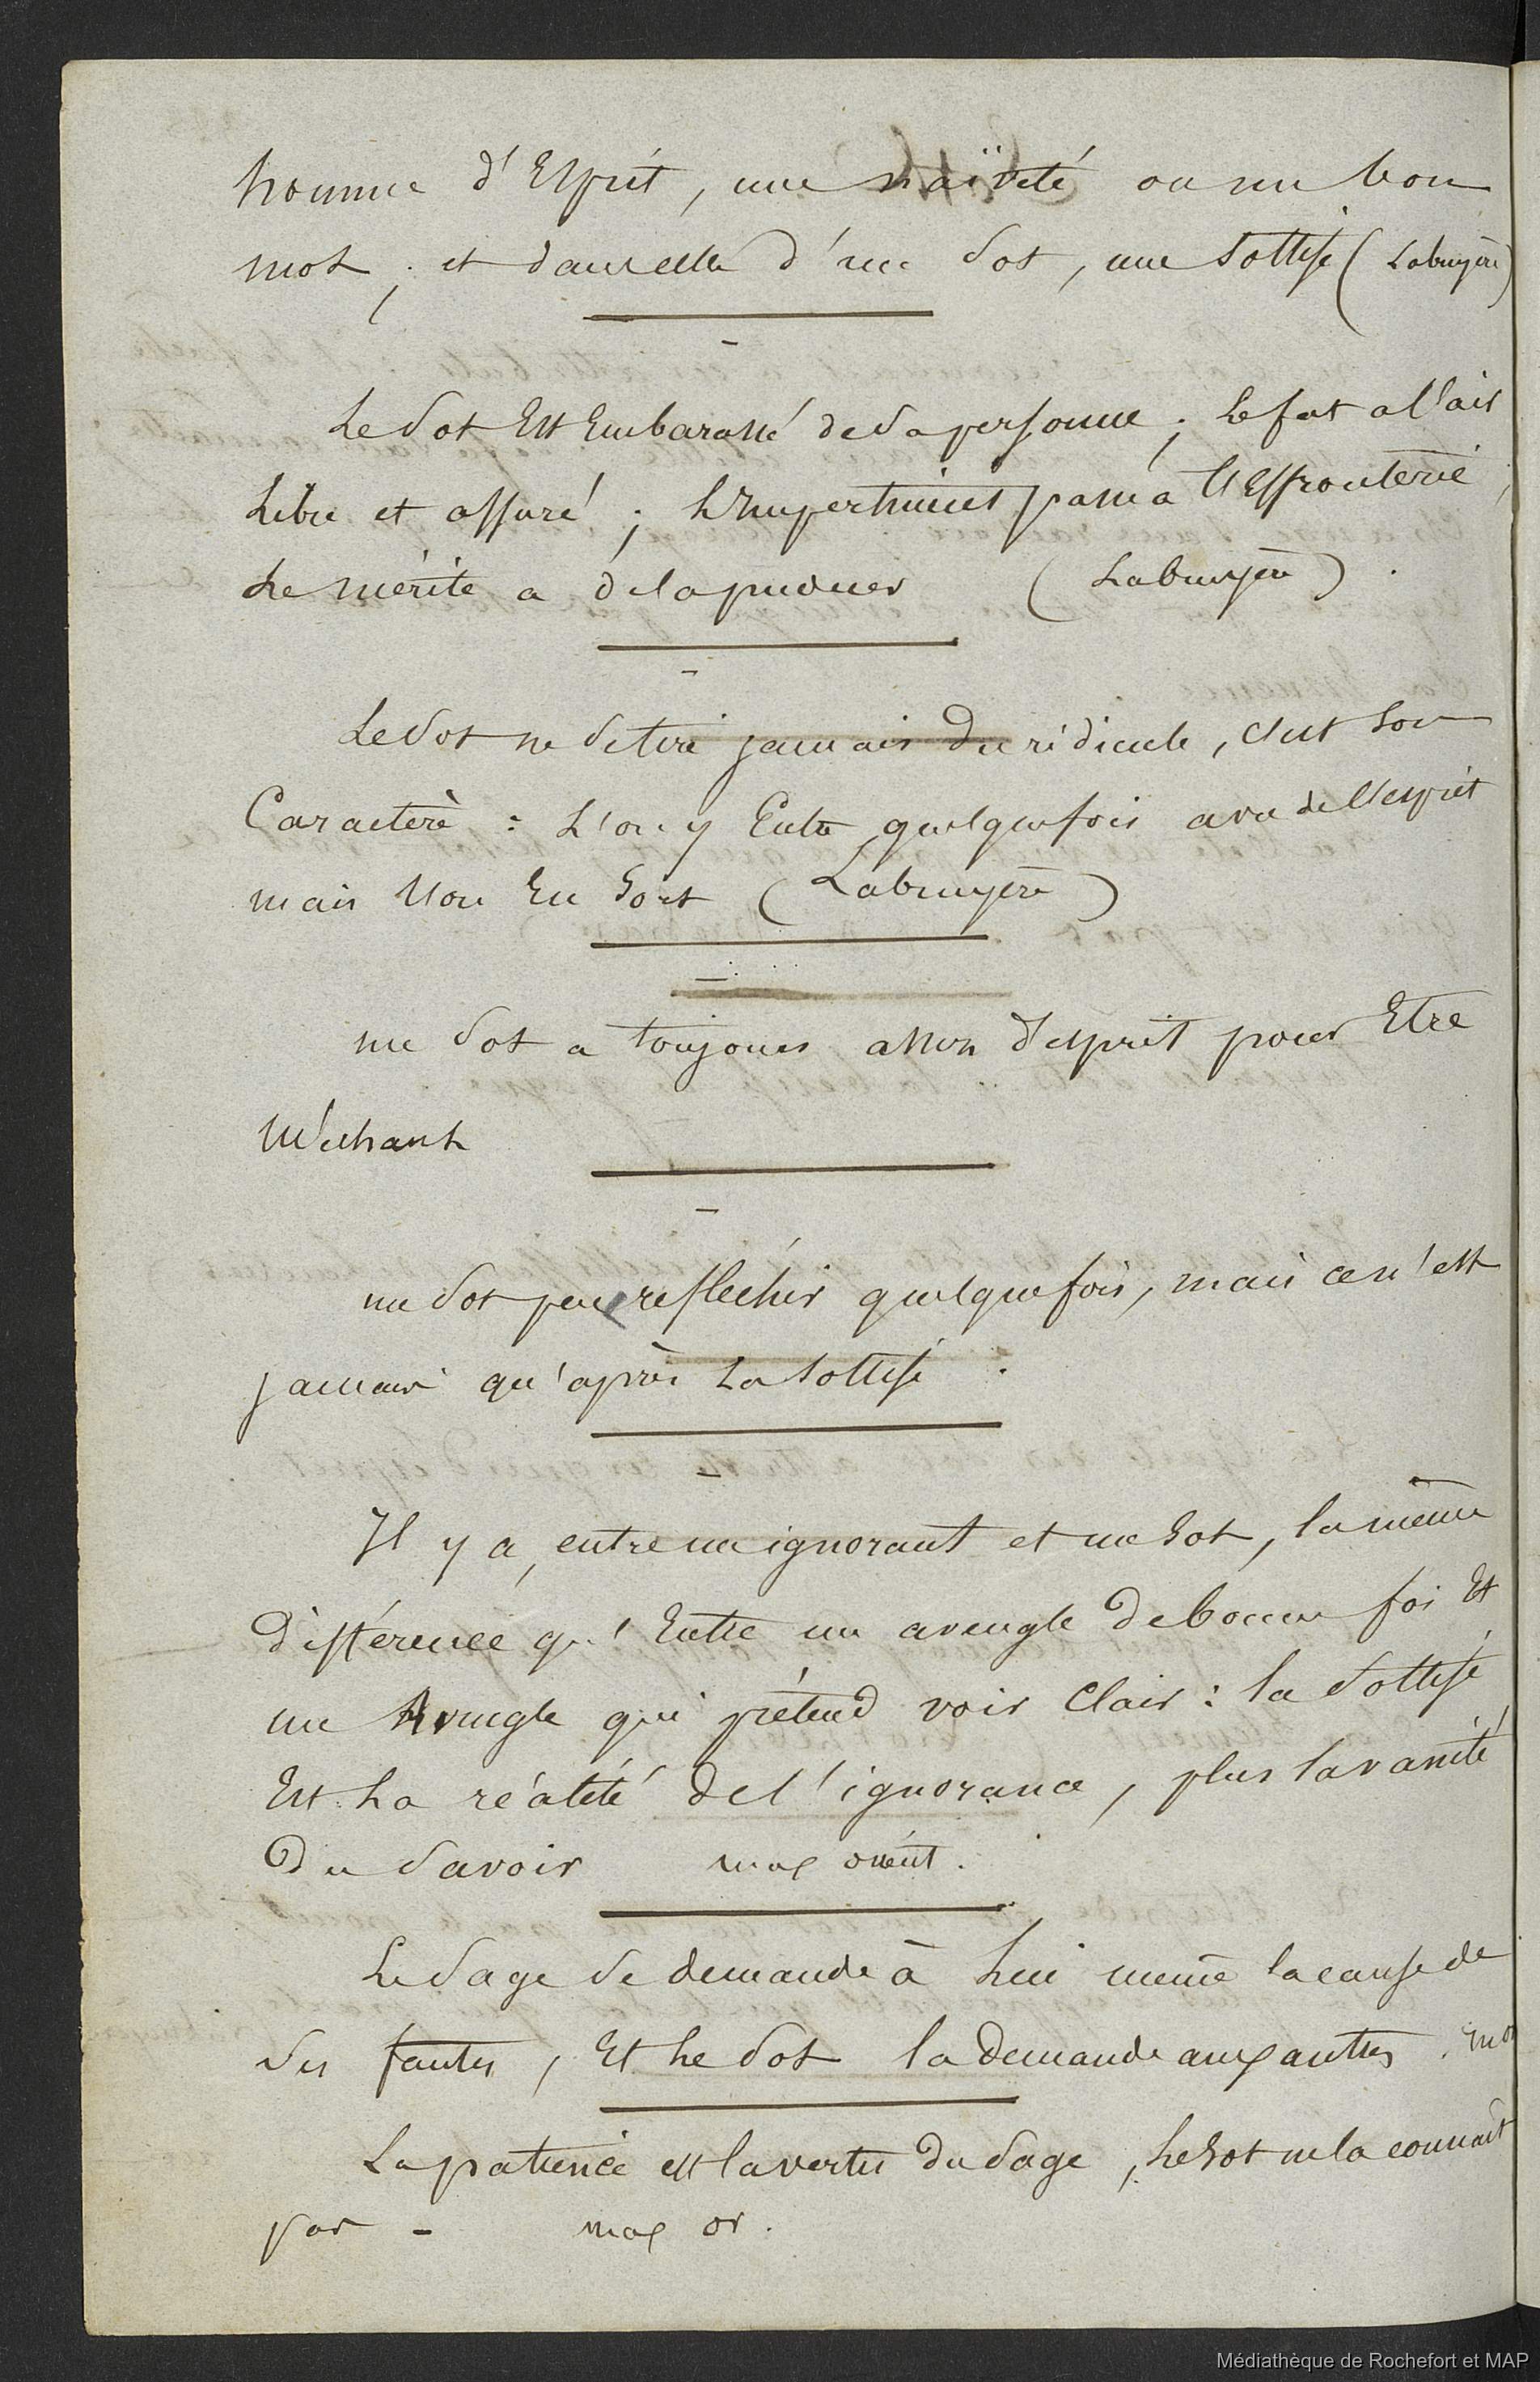 homme d'Esprit, une naïveté ou un bon
mot ; et dans celle d'un sot, une sottise (Labruyère)
Le sot Est Embarassé de sa personne ; le fat a l'air
Libre et assuré ; L'Impertinent passe a l'Effronterie ;
Le mérite a de la pudeur (Labruyère).
Le sot ne se tire jamais du ridicule, c'est son
Caractère : L'on y Entre quelquefois avec de l'esprit
mais l'on En sort (Labruyère)
un sot a toujours assez d'esprit pour Etre
Méchant
un sot peut reflechir quelquefois, mais ce n'est
jamais qu'après La sottise.
Il y a, entre un ignorant et un sot, la même
différence qu'Entre un aveugle de bonne foi Et
un Aveugle qui prétend voir Clair : la sottise
Est La réalité de l'ignorance, plus la vanité
Du savoir max orient.
Le sage se demande à Lui même la cause de
ses fautes, Et Le sot la demande aux autres.
La patience est la vertu du sage, Le sot ne la connait
pas - max or.
Médiathèque de Rochefort et MAP